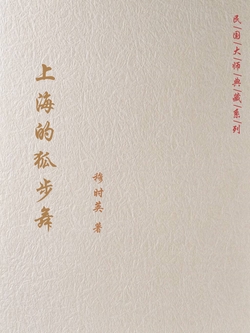 民/国/大/师/典/藏/系/列
上海的狐步舞
穆时英 著